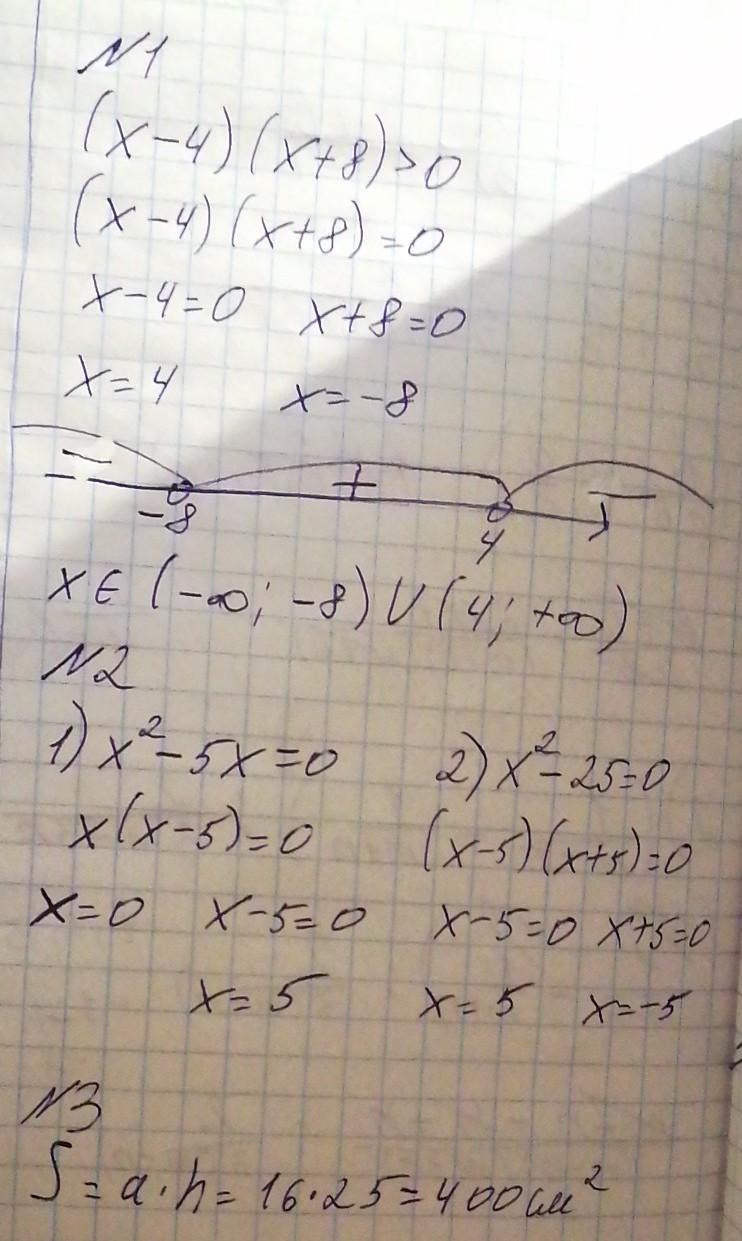 N1
(x-4)(x+8)>0
(x-4)(x+8)=0
x-4=0 x+8=0
x=4 x=-8
- + -
-8 4
x∈(-∞; -8)∪(4; +∞)
N2
1) x²-5x=0 2) x²-25=0
x(x-5)=0 (x-5)(x+5)=0
x=0 x-5=0 x-5=0 x+5=0
x=5 x=5 x=-5
N3
S=a·h=16·25=400см²